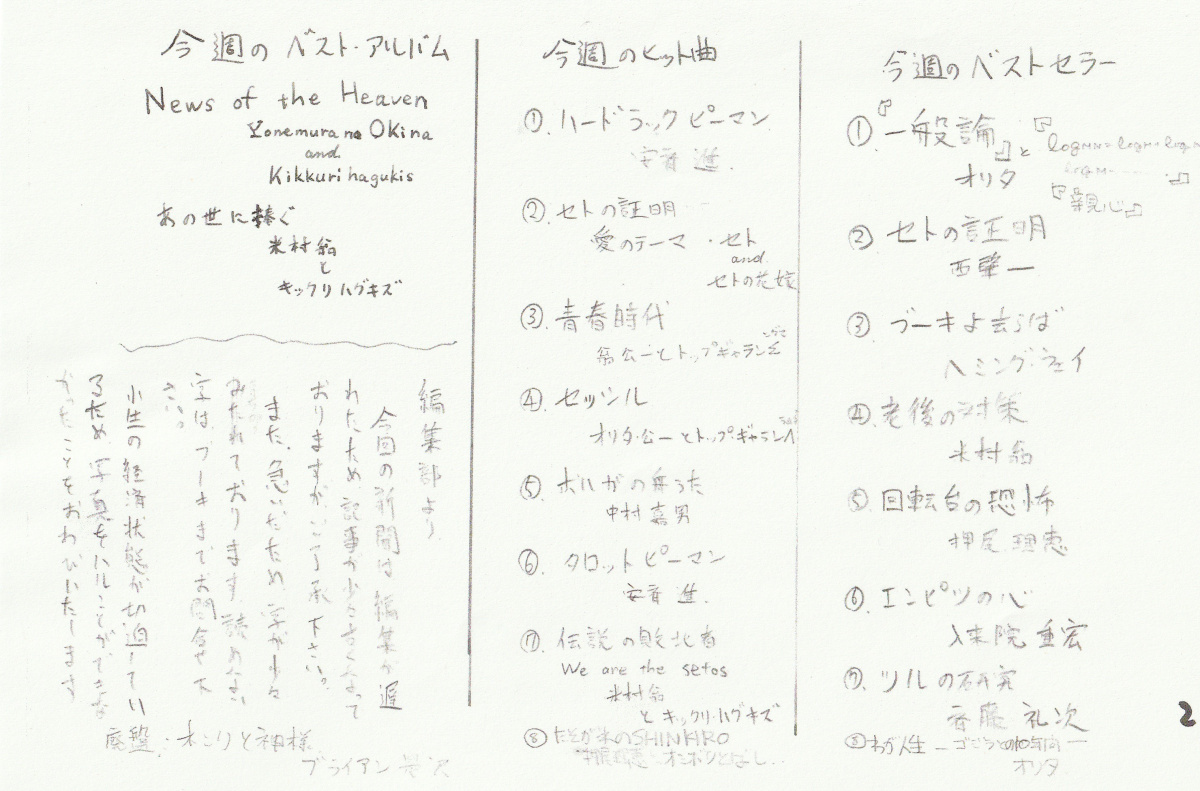 今週のベスト・アルバム
News of the Heaven
Yonemura no Okina
and
Kikkuri hagukis
あの世に捧ぐ
米村翁
と
キックリハグキズ
編集部より
今回の新聞は編集が遅
れたため記事が少々古くなって
おりますがご了承下さい。
また、急いだため、字が少々
みだれております。読めない
字は、ブーキまでお問合せ下
さい。
小生の経済状態が切迫してい
るため写真をハルことができな
かったことをおわびいたします
廃盤・ネコリと神様
ブライアン
今週のヒット曲
① ハードラックピーマン
安斉 進.
② セトの証明
愛のテーマ・セト
and
セトの花嫁
③ 青春時代
翁公一とトップギャラン
④ セッシル
オリタ公一とトップギャラン
⑤ ボルガの舟うた
中村嘉男
⑥ タロットピーマン
安斉 進.
⑦ 伝説の敗北者
We are the setos
米村翁
とキックリ・ハグキズ
⑧ たそがれのSHINKIRO
今週のベストセラー
① 『一般論』と『logMN=logM+logN
logM
オリタ
『親心』
② セトの証明
西肇一
③ ブーキよさらば
ヘミング・ウェイ
④ 老後の対策
米村翁
⑤ 回転台の恐怖
押尾 理恵
⑥ エンピツの心
入来院 重宏
⑦ ツルの研究
斉藤 礼次
⑧ わが人生 ーゴジラとの10年間ー
オリタ
2